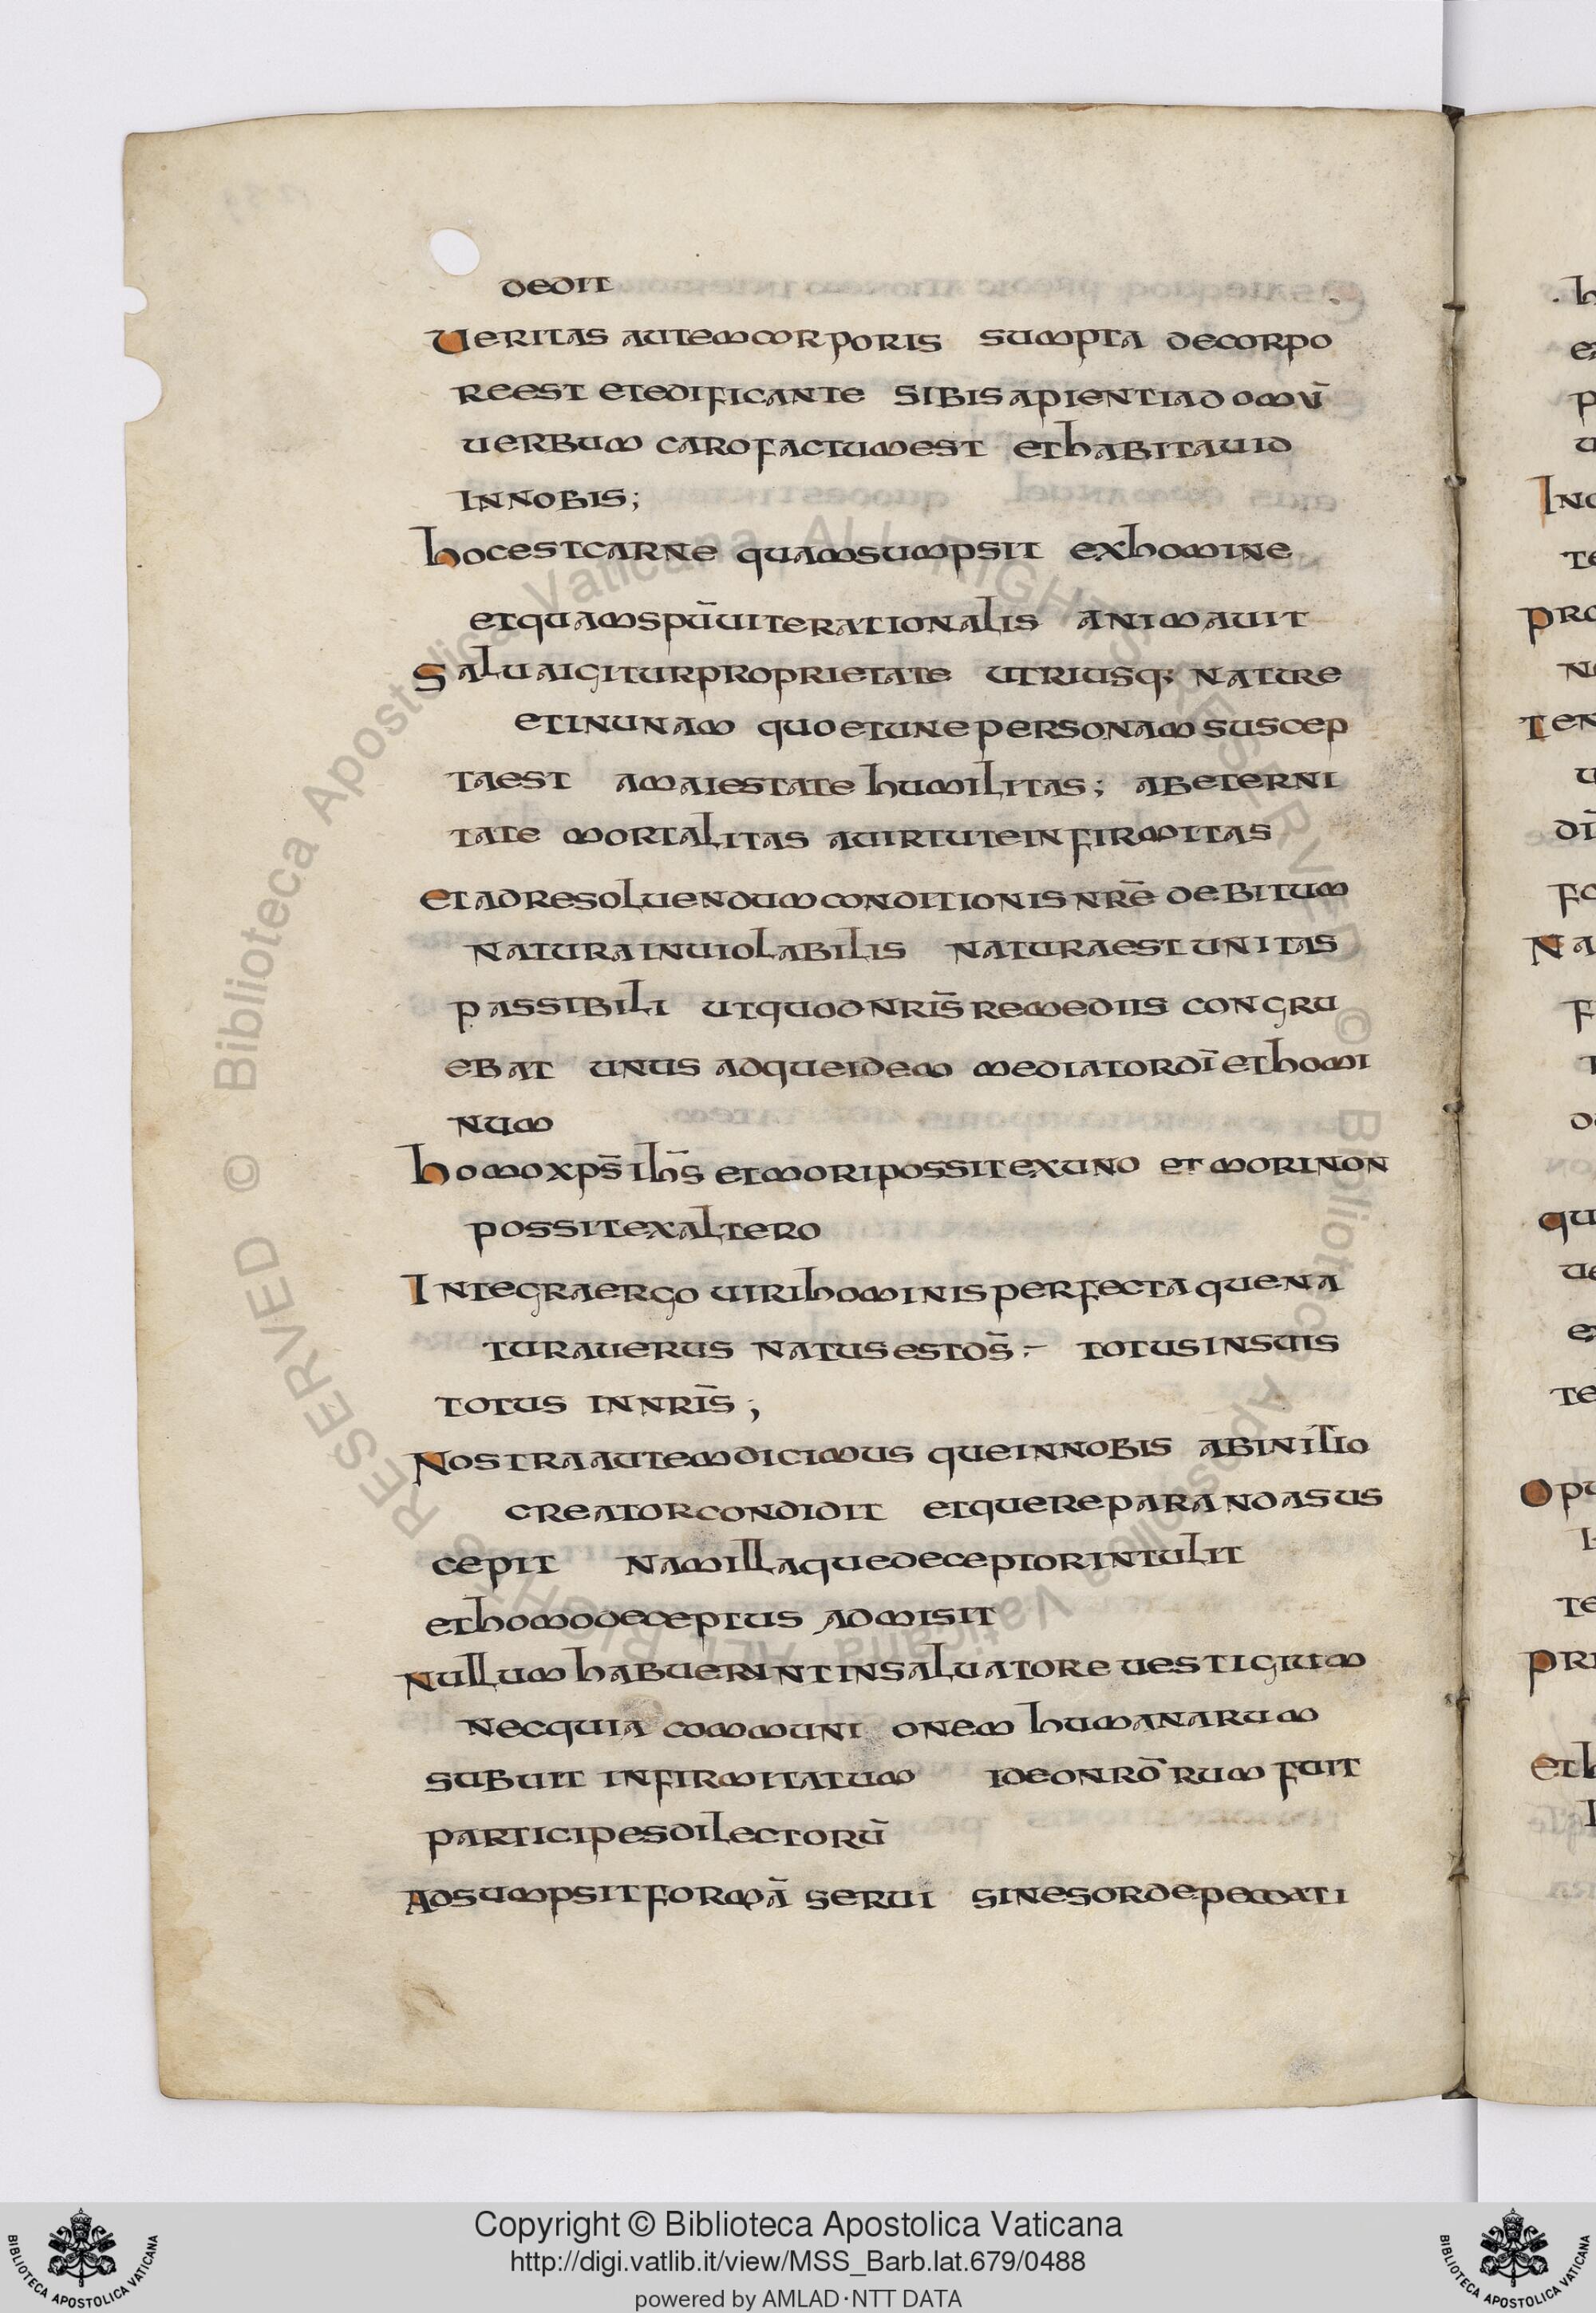 dedit
Ueritas autemcorporis sumpta decorpo
reest etedificante sibisapientiadomū
uerbum carofactumest ethabitauid
innobis;
hocestcarne quamsumpsit exhomine
etquamspūuiterationalis animauit
Saluaigiturproprietate utriusq; nature
etinunam quoetunepersonamsuscep
taest amaiestatehumilitas; abeterni
tate mortalitas auirtuteinfirmitas
etadresoluendumconditionisnrē debitum
naturainuiolabilis naturaestunitas
passibili utquodnrīsremediis congru
ebat unus adqueidem mediatordīethomi
num
homoxps̄ihs̄ etmoripossitexuno et morinon
possitexaltero
Integraergo uirihominisperfectaquena
turauerus natusestds̄ totusinsuis
totus innrīs;
Nostraautemdicimus queinnobis abinitio
creatorcondidit etquereparandasus
cepit namillaquedeceptorintulit
ethomodeceptus admisit
Nullumhabuerintinsaluatoreuestigium
necquia communi onem humanarum
subuit infirmitatum ideonrōrum fuit
participesdilectorū
Adsumpsitformā serui sinesordepeccati
Copyright © Biblioteca Apostolica Vaticana
http://digi.vatlib.it/view/MSS_Barb.lat.679/0488
powered by AMLAD·NTT DATA